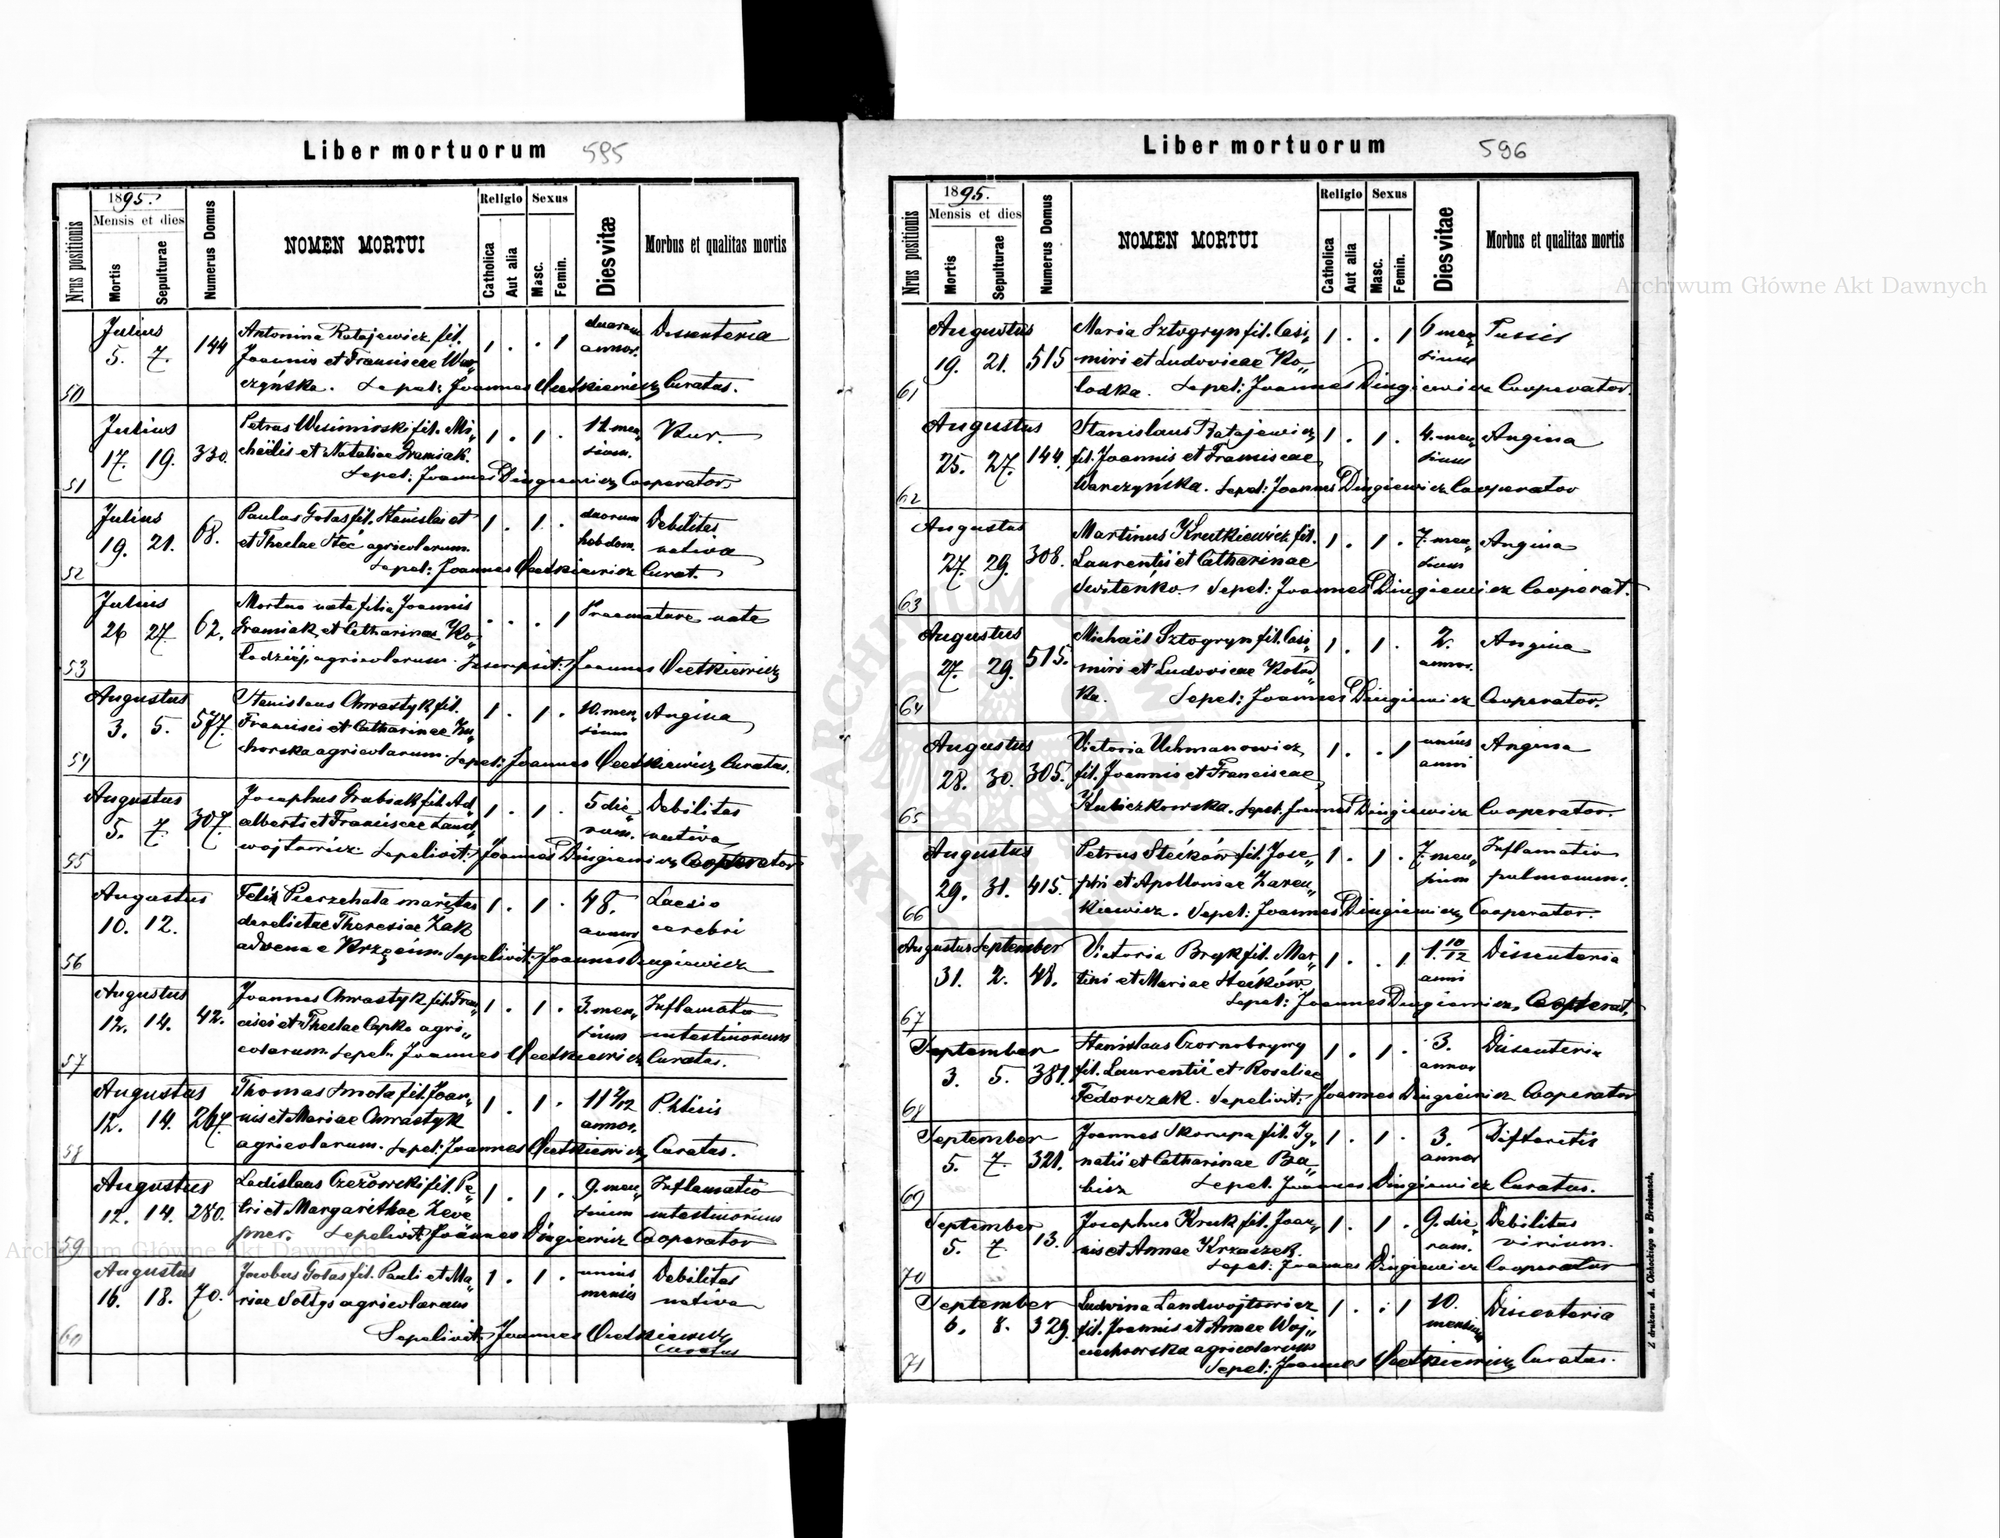 Liber mortuorum 595
Nrus positionis
1895.
Mensis et dies
Mortis
Sepulturae
Numerus Domus
NOMEN MORTUI
Religio
Catholica
Aut alia
Sexus
Masc.
Femin.
Dies vitæ
Morbus et qualitas mortis
50
Julius
5. 7. 144
Antonina Ratajewicz fil.
Joannis et Franciscae War„
czyńska. Sepel: Joannes Curatus.
1 . . 1
duorum
annor.
Dissenteria
51
Julius
17. 19. 330.
Petrus fil. Mi„
chaëlis et Nataliae Framiak.
Sepel: Joannes Dingiewicz Cooperator.
1 . 1 .
12. men„
sium.
52
Julius
19. 21. 68.
Paulus Gołas fil. Stanislai et
et Theclae Steć agricolarum.
Sepel: Joannes Curat.
1 . 1 .
duorum
hebdom.
Debilitas
nativa
53
Julius
26 27. 62.
Mortua nata filia Joannis
Framiak et Catharinae Ko„
łodziej agricolarum. Inscripsit: Joannes
. . . 1
Praemature nata
54
Augustus
3. 5. 577.
Stanislaus Chwastyk fil.
Francisci et Catharinae Za„
chorska agricolarum. Sepel: Joannes Curatus.
1 . 1 .
10. men„
sium
Angina
55
Augustus
5. 7. 307
Josephus Grabiak fil. Ad„
alberti et Franciscae Land„
wojtowicz. Sepelivit: Joannes Dingiewicz Cooperator
1 . 1 .
5 die„
rum.
Debilitas
nativa
56
Augustus
10. 12.
Felix Pierzchała maritus
derelictae Theresiae Żak
advena e Sepelivit: Joannes Dingiewicz
1 . 1 .
48.
annor
Laesio
cerebri
57
Augustus
12. 14. 42.
Joannes Chwastyk fil. Fran„
cisci et Theclae Capko agri„
colarum. Sepel. Joannes Curatus.
1 . 1 .
3. men„
sium
Inflamatio
intestinorum
58
Augustus
12. 14. 267.
Thomas Smola fil. Joan„
nis et Mariae Chwastyk
agricolarum. Sepel: Joannes Curatus.
1 . 1 .
11 2/12
annor.
Phtisis
59
Augustus
12. 14. 280.
Ladislaus fil. Pe„
tri et Margarithae
Sepelivit: Joannes Dingiewicz Cooperator
1 . 1 .
9. men„
sium
Inflamatio
intestinorum
60
Augustus
16. 18. 70.
Jacobus Gołas fil. Pauli et Ma„
riae Sołtys agricolarum
Sepelivit: Joannes
Curatus
1 . 1 .
unius
mensis
Debilitas
nativa
Liber mortuorum 596
Nrus positionis
1895.
Mensis et dies
Mortis
Sepulturae
Numerus Domus
NOMEN MORTUI
Religio
Catholica
Aut alia
Sexus
Masc.
Femin.
Dies vitæ
Morbus et qualitas mortis
61
Augustus
19. 21. 515
Maria Sztogryn fil. Casi„
miri et Ludovicae Ko„
lodka. Sepel: Joannes Dingiewicz Cooperator.
1 . . 1
6 men„
sium
Tussis
62
Augustus
25. 27. 144.
Stanislaus Ratajewicz
fil. Joannis et Franciscae
Warczyńska. Sepel: Joannes Dingiewicz Cooperator
1 . 1 .
4. men„
sium
Angina
63
Augustus
27. 29. 308.
Martinus Krutkiewicz fil.
Laurentii et Catharinae
Switeńko. Sepel: Joannes Dingiewicz Cooperat.
1 . 1 .
7. men„
sium
Angina
64
Augustus
27. 29. 515.
Michaël Sztogryn fil. Casi„
miri et Ludovicae Kolod„
ka. Sepel: Joannes Dingiewicz Cooperator.
1 . 1 .
2.
annor.
Angina
65
Augustus
28. 30. 305.
Victoria Uchmanowicz
fil. Joannis et Franciscae
Kubiczkowska. Sepel: Joannes Dingiewicz Cooperator.
1 . . 1
unius
anni
Angina
66
Augustus
29. 31. 415.
Petrus Stećków fil. Jose„
phi et Apolloniae Zaren„
kiewicz. Sepel: Joannes Dingiewicz Cooperator.
1 . 1 .
7. men„
sium
Inflamatio
pulmonum.
67
Augustus September
31. 2. 48.
Victoria Bryk fil. Mar„
tini et Mariae Stećków.
Sepel: Joannes Dingiewicz Cooperat.
1 . . 1
1. 10/12
anni
Dissenteria
68
September
3. 5. 381.
Stanislaus Czornobrywy
fil. Laurentii et Rosaliae
Fedorczak. Sepelivit: Joannes Dingiewicz Cooperator
1 . 1 .
3.
annor
Dissenteria
69
September
5. 7. 321.
Joannes Skorupa fil. Ig„
natii et Catharinae Ba„
bisz Sepel. Joannes Dingiewicz Curatus.
1 . 1 .
3.
annor
Difteritis
70
September
5. 7. 13.
Josephus Kruk fil. Joan„
nis et Annae Krzaczek.
Sepel: Joannes Dingiewicz Cooperator
1 . 1 .
9. die„
rum.
Debilitas
virium.
71
September
6. 8. 329.
Ludvina Landwojtowicz
fil. Joannis et Annae Woj„
ciechowska agricolarum
Sepel: Joannes Curatus.
1 . . 1
10.
mensium
Dissenteria
Z drukarni A. Cichockiego w Brzeżanach.
Archiwum Główne Akt Dawnych
Archiwum Główne Akt Dawnych